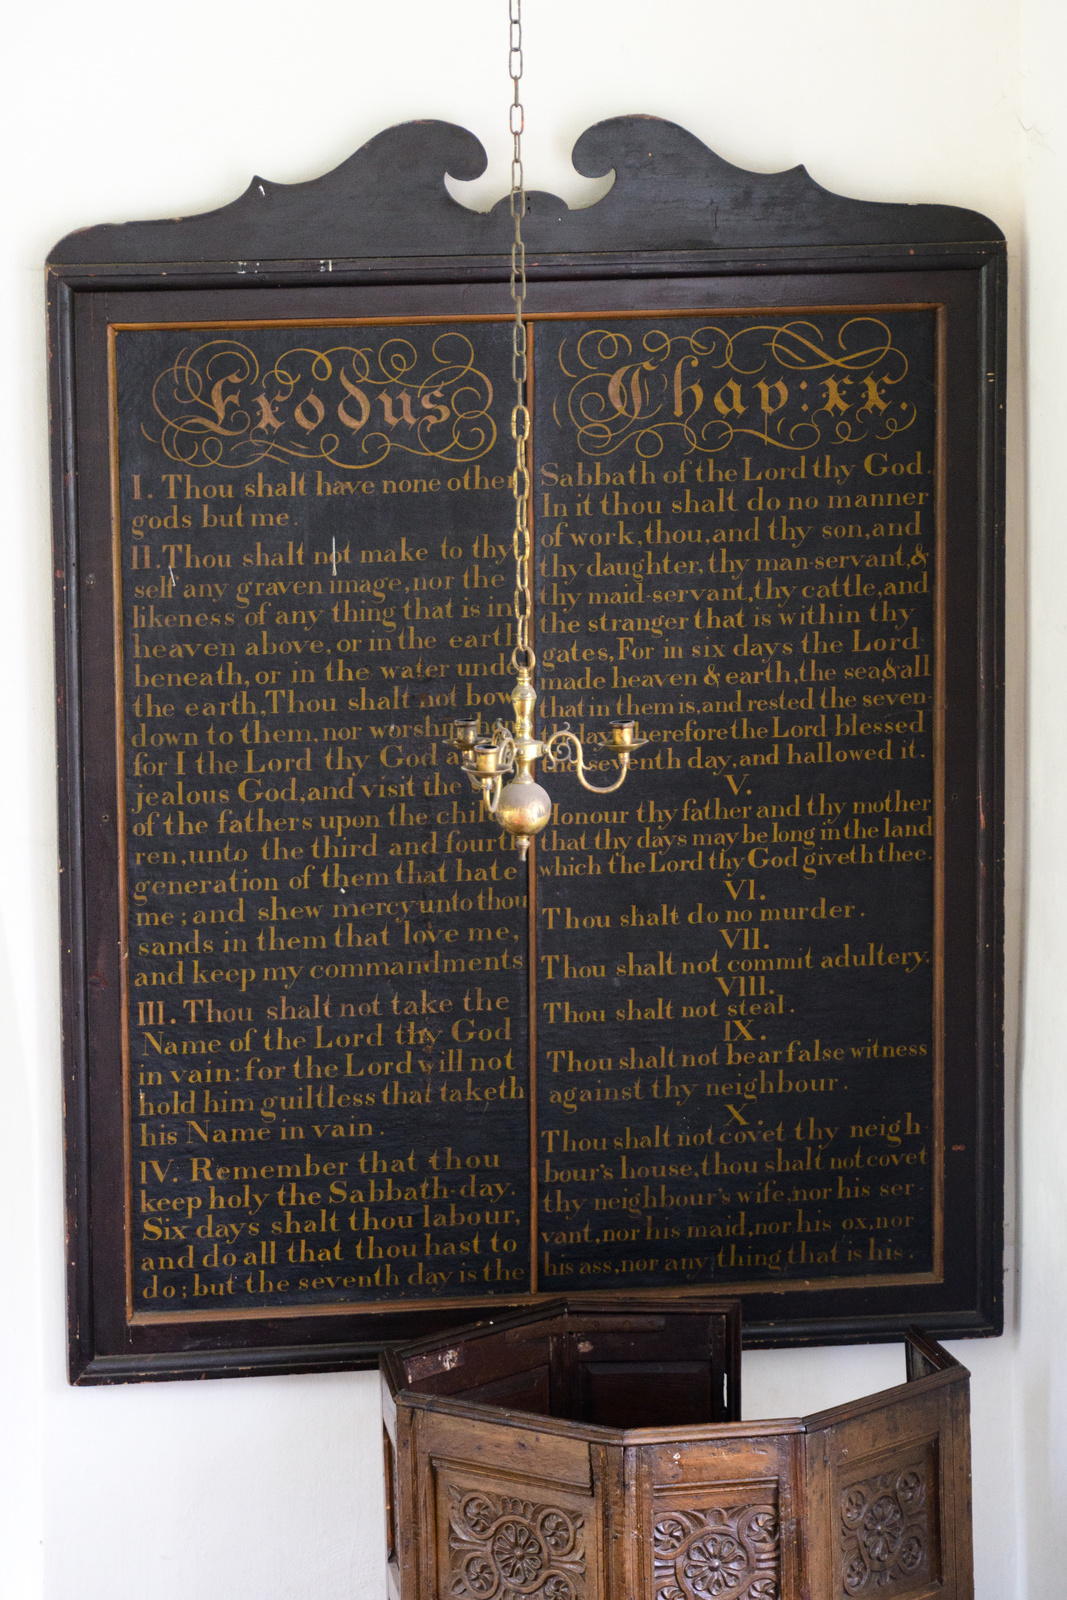 Exodus
I. Thou shalt have none other
gods but me.
II. Thou shalt not make to thy
self any graven image, nor the
likeness of any thing that is in
heaven above, or in the earth
beneath, or in the water unde
the earth, Thou shalt not bow
down to them, nor worship
for I the Lord thy God a
jealous God, and visit the
of the fathers upon the child
ren, unto the third and fourth
generation of them that hate
me; and shew mercy unto thou
sands in them that love me,
and keep my commandments
III. Thou shalt not take the
Name of the Lord thy God
in vain: for the Lord will not
hold him guiltless that taketh
his Name in vain.
IV. Remember that thou
keep holy the Sabbath-day.
Six days shalt thou labour,
and do all that thou hast to
do; but the seventh day is the
Chap: xx.
Sabbath of the Lord thy God.
In it thou shalt do no manner
of work, thou, and thy son, and
thy daughter, thy man-servant, &
thy maid-servant, thy cattle, and
the stranger that is within thy
gates, For in six days the Lord
made heaven & earth, the sea & all
that in them is, and rested the seven-
day, wherefore the Lord blessed
the seventh day, and hallowed it.
V.
Honour thy father and thy mother
that thy days may be long in the land
which the Lord thy God giveth thee.
VI.
Thou shalt do no murder.
VII.
Thou shalt not commit adultery.
VIII.
Thou shalt not steal.
IX.
Thou shalt not bear false witness
against thy neighbour.
X.
Thou shalt not covet thy neigh-
bour's house, thou shalt not covet
thy neighbour's wife, nor his ser-
vant, nor his maid, nor his ox, nor
his ass, nor any thing that is his.